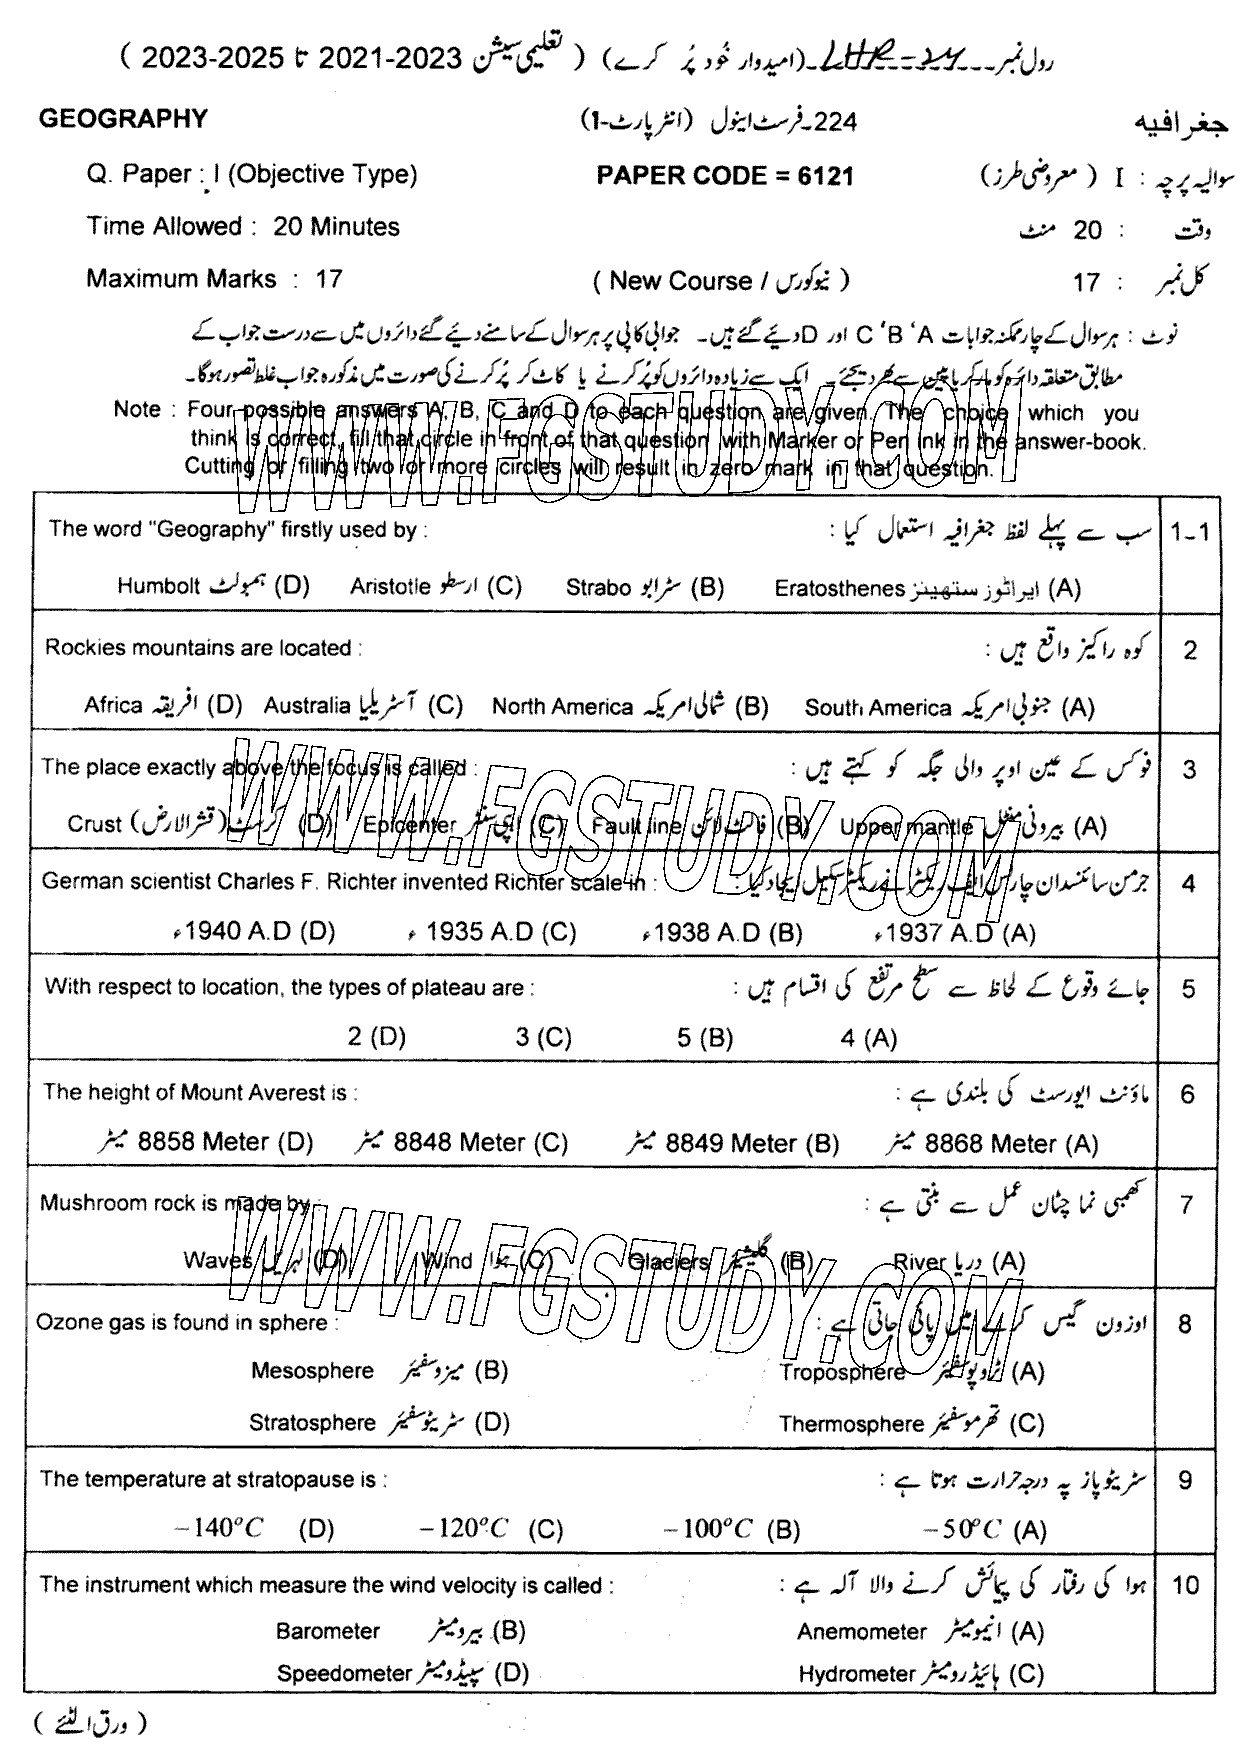 رول نمبر ـ ـ ـ LHR ـ ـ ـ (امیدوار خُود پُر کرے) ( تعلیمی سیشن 2023-2021 تا 2025-2023 )
GEOGRAPHY 224۔فرسٹ اینول (انٹر پارٹ-I) جغرافیہ
Q. Paper : I (Objective Type) PAPER CODE = 6121 سوالیہ پرچہ : I ( معروضی طرز )
Time Allowed : 20 Minutes وقت : 20 منٹ
Maximum Marks : 17 ( New Course / نیو کورس ) کل نمبر : 17
نوٹ : ہر سوال کے چار ممکنہ جوابات A' B' C اور D دیئے گئے ہیں۔ جوابی کاپی پر ہر سوال کے سامنے دیئے گئے دائروں میں سے درست جواب کے
مطابق متعلقہ دائرہ کو مارکر یا پین سے بھر دیجئے۔ ایک سے زیادہ دائروں کو پُر کرنے یا کاٹ کر پُر کرنے کی صورت میں مذکورہ جواب غلط تصور ہوگا۔
Note : Four possible answers A, B, C and D to each question are given. The choice which you
think is correct, fill that circle in front of that question with Marker or Pen ink in the answer-book.
Cutting or filling two or more circles will result in zero mark in that question.
WWW.FGSTUDY.COM
The word "Geography" firstly used by : سب سے پہلے لفظ جغرافیہ استعمال کیا : 1-1
Humbolt ہمبولٹ (D) Aristotle ارسطو (C) Strabo سٹرابو (B) Eratosthenes ایراٹوز ستھینز (A)
Rockies mountains are located : کوہ راکیز واقع ہیں : 2
Africa افریقہ (D) Australia آسٹریلیا (C) North America شمالی امریکہ (B) South America جنوبی امریکہ (A)
The place exactly above the focus is called : فوکس کے عین اوپر والی جگہ کو کہتے ہیں : 3
Crust کرسٹ (قشر الارض) (D) Epicenter ایپی سنٹر (C) Fault line فالٹ لائن (B) Upper mantle بیرونی مینٹل (A)
WWW.FGSTUDY.COM
German scientist Charles F. Richter invented Richter scale in : جرمن سائنسدان چارلس ایف ریکٹر نے ریکٹر سکیل ایجاد کیا : 4
ء1940 A.D (D) ء 1935 A.D (C) ء1938 A.D (B) ء1937 A.D (A)
With respect to location, the types of plateau are : جائے وقوع کے لحاظ سے سطح مرتفع کی اقسام ہیں : 5
2 (D) 3 (C) 5 (B) 4 (A)
The height of Mount Averest is : ماؤنٹ ایورسٹ کی بلندی ہے : 6
میٹر 8858 Meter (D) میٹر 8848 Meter (C) میٹر 8849 Meter (B) میٹر 8868 Meter (A)
Mushroom rock is made by : کھمبی نما چٹان عمل سے بنتی ہے : 7
Waves لہریں (D) Wind ہوا (C) Glaciers گلیشیئر (B) River دریا (A)
WWW.FGSTUDY.COM
Ozone gas is found in sphere : اوزون گیس کرے میں پائی جاتی ہے : 8
Mesosphere میزوسفیئر (B) Troposphere ٹروپوسفیئر (A)
Stratosphere سٹریٹوسفیئر (D) Thermosphere تھرموسفیئر (C)
The temperature at stratopause is : سٹریٹوپاز پہ درجہ حرارت ہوتا ہے : 9
−140°C (D) −120°C (C) −100°C (B) −50°C (A)
The instrument which measure the wind velocity is called : ہوا کی رفتار کی پیمائش کرنے والا آلہ ہے : 10
Barometer بیرومیٹر (B) Anemometer انیمومیٹر (A)
Speedometer سپیڈومیٹر (D) Hydrometer ہائیڈرومیٹر (C)
( ورق الٹئے )